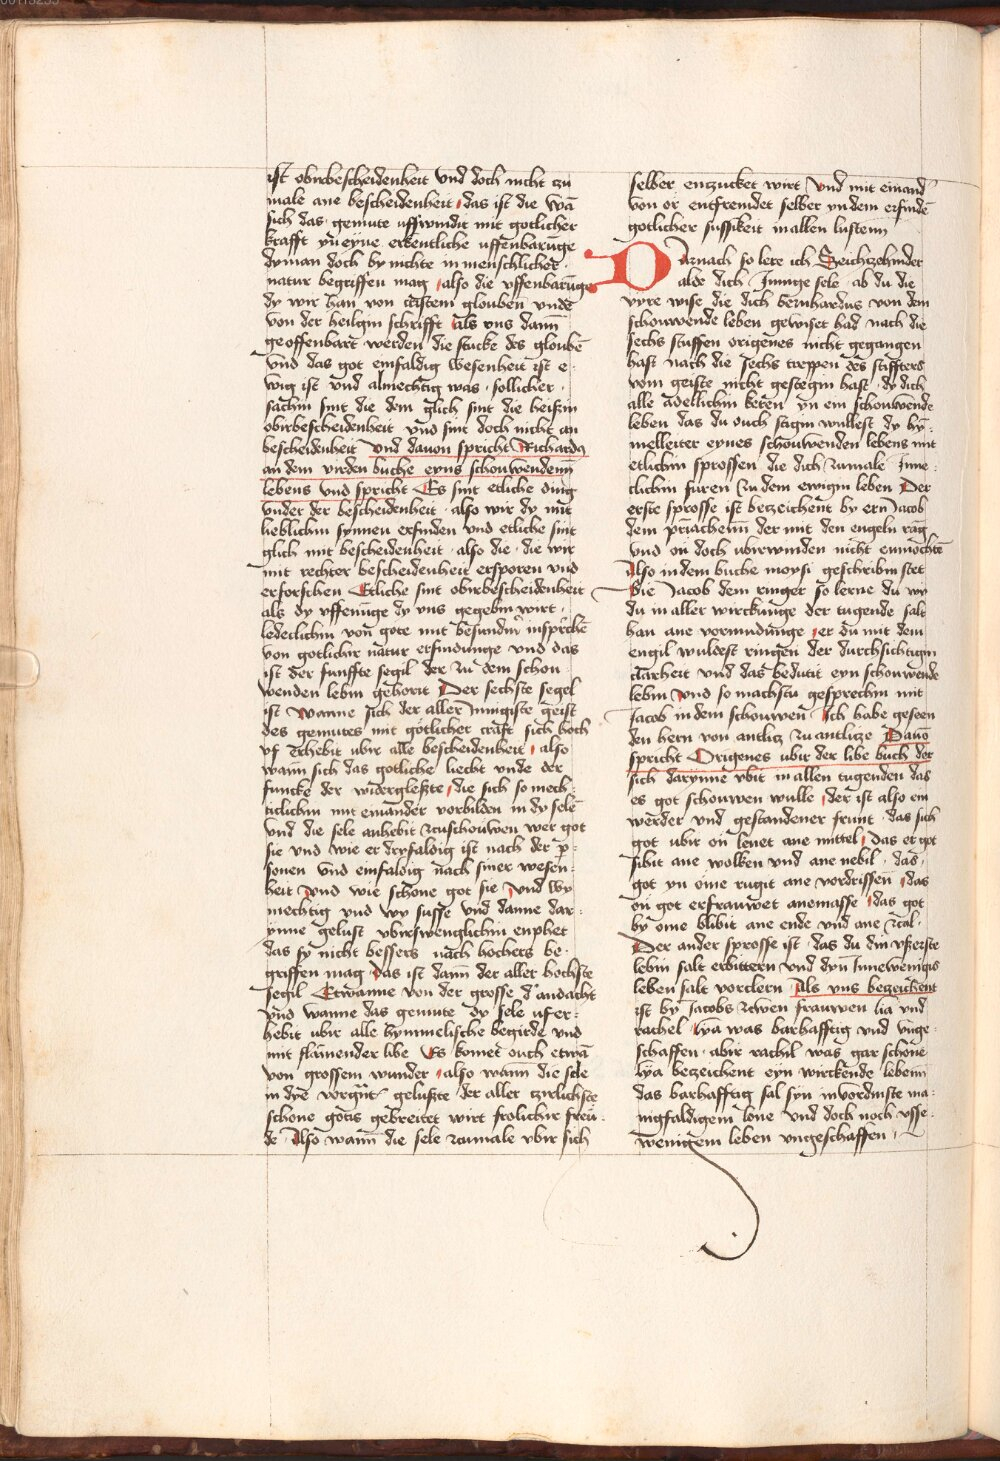 ist obirbescheidenheit vnd doch nicht czu
male ane bescheidenheit das ist die wā
sich das gemute uffwindit mit gotlicher
krafft yn eyne erkentliche uffenbarūge
dy man doch by nichte in menschlicher
natur begriffen mag also die uffenbarūge
dy wir han von cristem glouben vnde
von der heilgin schrifft als uns dann
geoffenbart werden die stucke des gloubē
vnd das got einfaldig wesenheit ist e-
wig ist vnd almechtig was sollicher
sachin sint die dem glich sint die heissin
obirbescheidenheit vnd sint doch nicht an
bescheidenheit vnd dauon spricht Richardus
an dem virden buche eyns schouwendenn
lebens vnd spricht Es sint etliche ding
vnder der bescheidenheit also wir dy mit
lieblichin synnen erfinden vnd etliche sint
glich mit bescheidenheit also die die wir
mit rechter bescheidenheit ersporen vnd
erforschen Etliche sint obirbescheidenheit
als dy uffenūge dy uns gegebin wirt
ledeclichin von gote mit besundir insprechē
von gotlichir natur erfindunge vnd das
ist der funffte segil der zu dem schou
wenden lebin gehorit Der sechste segel
ist wanne sich der aller Innigiste geist
des gemutes mit gotlicher craft sich hoch
uf erhebit ubir alle bescheidenheit also
wann sich das gotliche liecht vnde der
funcke der widerglestze die sich so mech-
ticlichin mit einander vorbilden in dy sele
vnd die sele anhebit czuschouwen wer got
sie vnd wie er dryfaldig ist nach der p-
sonen vnd einfaldig nach siner wesen-
heit vnd wie schone got sie vnd wy
mechtig vnd wy susse vnd danne dar-
ynne gelust ubirswenglichin enphet
das sy nicht bessers nach hochers be-
griffen mag das ist dann der aller hochste
segil Etwanne von der grosse d' andacht
vnd wanne das gemute dy sele uf er-
hebit ubir alle hymmelische begirde vnd
mit flāmender libe Es komet ouch etwā
von grossem wunder also wann die sele
in dye gelustze der aller tzirlichste
schone gotis gebreitet wirt frolichir freu-
de Also wann die sele zumale ubir sich
selber enzucket wirt vnd mit einand'
von or entfremdet selber yn dem erfindē
gotlicher sussikeit in allen lustenn
Darnach so lere ich Sechzehender
alde dich Innige sele ab du die
vyre wise die dich bernhardus von dem
schouwende leben gewiset had nach die
sechs stuffen origenes nicht gegangen
hast nach die sechs treppen des stiffters
vom geiste nicht gestegin hast dy dich
alle adellichin keren yn ein schouwende
leben das du ouch stigin wullest dy hy-
melleiter eynes schouwenden lebens mit
etlichin sprossen die dich zumale Inne-
clichin furen zu dem ewigin leben Der
erste sprosse ist bezeichent by ern Jacob
dem patriarchenn der mit den engeln rāg
vnd on doch ubirwinden nicht enmochte
Also in dem buche moysi geschribin stet
Bie Jacob dem ringer so lerne du wy
du in aller wirckunge der tugende salt
han ane vorwindunge er du mit dem
engil wuldest ringen der durchsichtigin
clarheit vnd das bedutit eyn schouwende
lebin vnd so machstu gesprechin mit
Jacob in dem schouwen Ich habe geseen
den hern von antlitz zu antlitze Dauō
spricht Origenes ubir der libe buch der
sich darynne ubit in allen tugenden das
es got schouwen wulle der ist also ein
werder vnd gestandener frunt das sich
got ubir on lenet ane mittel das er got
sihit ane wolken vnd ane nebil das
got yn eme rugit ane vordrissen das
on got erfrauwet anemasse das got
by ome blibit ane ende vnd ane czal
Der ander sprosse ist das du din usserste
lebin salt erbittern vnd dyn Innewenigs
leben salt vorclern Als uns bezeichent
ist by Jacobs czwen frauwen lia vnd
rachel lya was barhafftig vnd unge-
schaffen abir rachil was gar schone
lya bezeichent eyn wirckende lebenn
das barhafftig sal syn in vordinste ma-
nigfaldigem lone vnd doch noch usse-
wenigem leben ungeschaffen